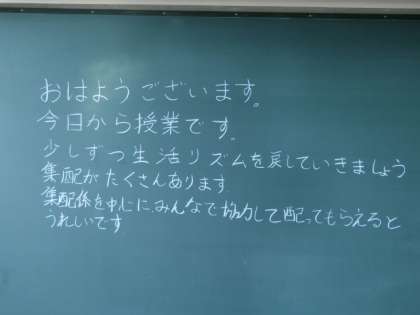 おはようございます。
今日から授業です。
少しずつ生活リズムを戻していきましょう
集配がたくさんあります.
集配係を中心に、みんなで協力して配ってもらえると
うれしいです